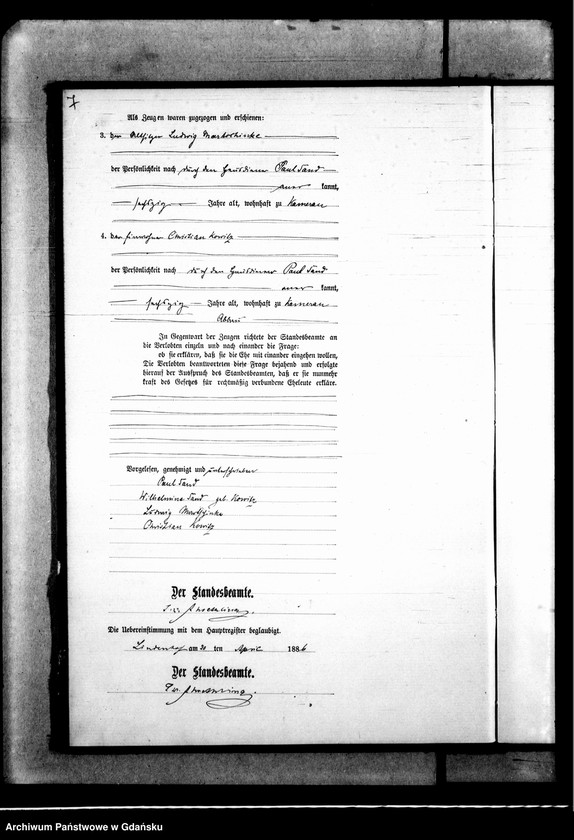 7
Als Zeugen waren zugezogen und erschienen:
3. der Altsitzer Ludwig
der Persönlichkeit nach durch den Hausdiener Paul Sand
aner kannt,
sechszig Jahre alt, wohnhaft zu Kameran
4. der Einwohner Christian Kowitz
der Persönlichkeit nach durch den Hausdiener Paul Sand
aner kannt,
sechszig Jahre alt, wohnhaft zu Kameran
Abbau
In Gegenwart der Zeugen richtete der Standesbeamte an
die Verlobten einzeln und nach einander die Frage:
ob sie erklären, daß sie die Ehe mit einander eingehen wollen,
Die Verlobten beantworteten diese Frage bejahend und erfolgte
hierauf der Ausspruch des Standesbeamten, daß er sie nunmehr
kraft des Gesetzes für rechtmäßig verbundene Eheleute erkläre.
Vorgelesen, genehmigt und unterschrieben
Paul Sand
Wilhelmine Sand geb. Kowitz
Ludwig
Christian Kowitz
Der Standesbeamte.
Die Uebereinstimmung mit dem Hauptregister beglaubigt.
Lindenhof am 20 ten April 1886
Der Standesbeamte.
Archiwum Państwowe w Gdańsku